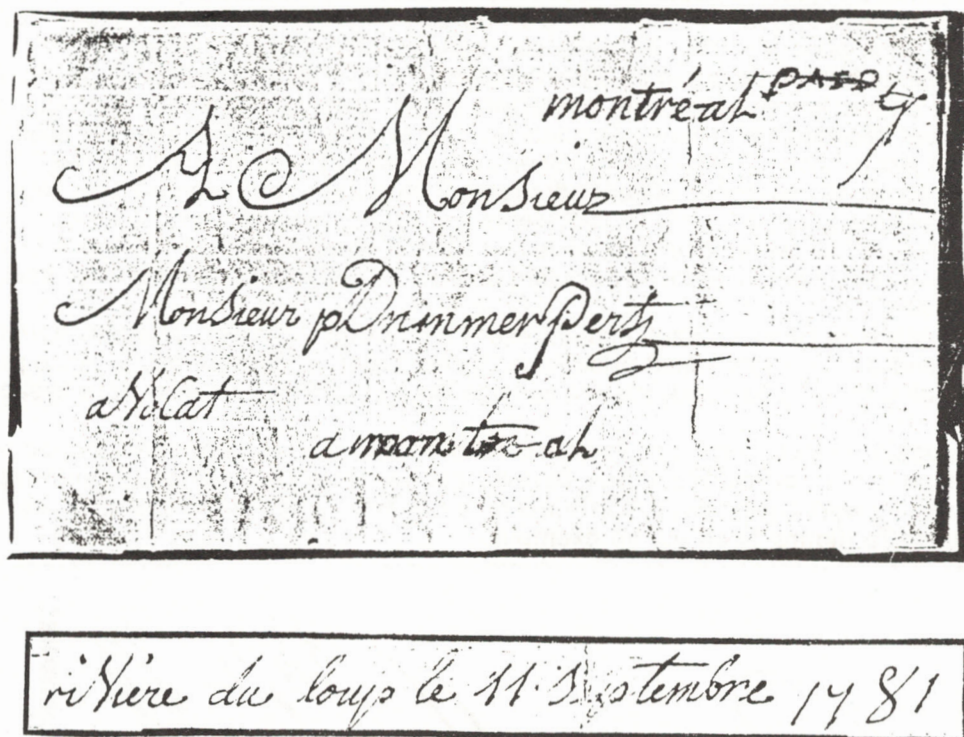 montréal PAID
A Monsieur
Monsieur p Dummer
avocat
a montreal
rivière du loup le 11 Septembre 1781